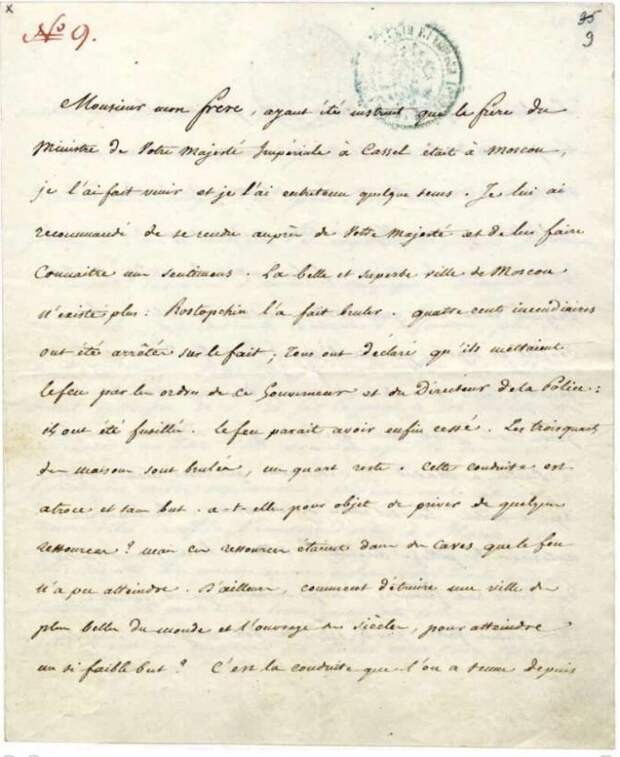 x
No 9.
35
9
Monsieur mon frere, ayant été instruit que le frère du
Ministre de Votre Majesté Impériale à Cassel était à Moscou,
je l'ai fait venir et je l'ai entretenu quelque tems. Je lui ai
recommandé de se rendre auprès de Votre Majesté et de lui faire
connaitre mes sentimens. La belle et superbe ville de Moscou
n'existe plus: Rostopchin l'a fait bruler. quatre cents incendiaires
ont été arrêtés sur le fait; tous ont déclaré qu'ils mettaient
le feu par les ordres de ce Gouverneur et du Directeur de la Police:
ils ont été fusillés. le feu parait avoir enfin cessé. Les trois quarts
des maisons sont brulées, un quart reste. Cette conduite est
atroce et sans but. a-t-elle pour objet de priver de quelques
ressources? mais ces ressources étaient dans des caves que le feu
n'a pu atteindre. D'ailleurs, comment détruire une ville des
plus belles du monde et l'ouvrage des siècles, pour atteindre
un si faible but? C'est la conduite que l'on a tenue depuis